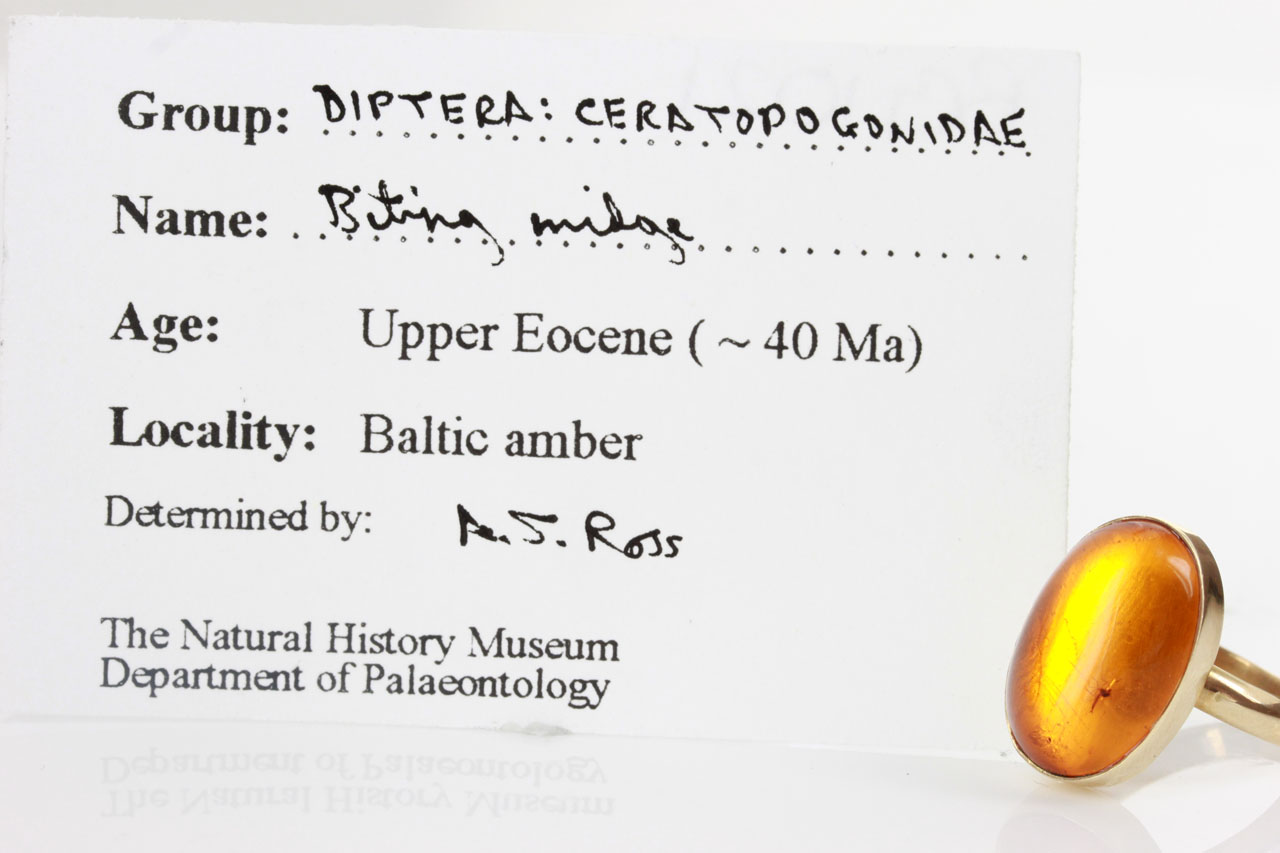 Group: DIPTERA: CERATOPOGONIDAE
Name: Biting midge
Age: Upper Eocene ( ~ 40 Ma)
Locality: Baltic amber
Determined by: A. J. Ross
The Natural History Museum
Department of Palaeontology